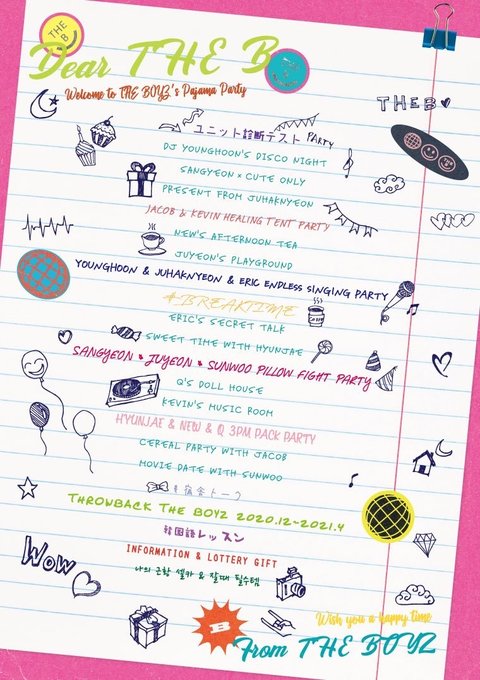 THE B
Dear THE B
Welcome to THE BOYZ's Pajama Party
THE B
ユニット診断テスト PARTY
DJ YOUNGHOON'S DISCO NIGHT
SANGYEON × CUTE ONLY
PRESENT FROM JUHAKNYEON
JACOB & KEVIN HEALING TENT PARTY
NEW'S AFTERNOON TEA
JUYEON'S PLAYGROUND
YOUNGHOON & JUHAKNYEON & ERIC ENDLESS SINGING PARTY
BREAKTIME
ERIC'S SECRET TALK
SWEET TIME WITH HYUNJAE
SANGYEON & JUYEON & SUNWOO PILLOW FIGHT PARTY
Q'S DOLL HOUSE
KEVIN'S MUSIC ROOM
HYUNJAE & NEW & Q 3PM PACK PARTY
CEREAL PARTY WITH JACOB
MOVIE DATE WITH SUNWOO
宿舎トーク
THROWBACK THE BOYZ 2020.12-2021.4
韓国語レッスン
INFORMATION & LOTTERY GIFT
나의 근황 셀카 & 잘때 필수템
WOW
B
Wish you a happy time
From THE BOYZ